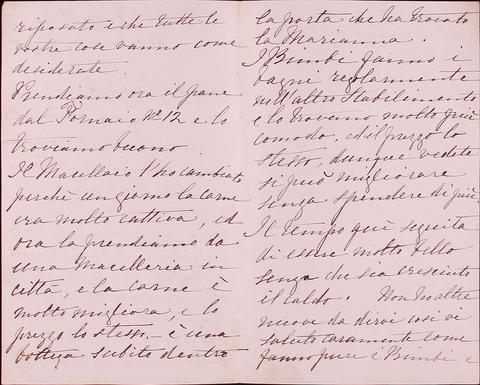 riposato e che tutte le
vostre cose vanno come
desiderate.
Prendiamo ora il pane
dal Fornaio Nº 12 e lo
troviamo buono.
Il Macellaio l'ho cambiato
perchè un giorno la carne
era molto cattiva, ed
ora la prendiamo da
una Macelleria in
città, e la carne è
molto migliora, e lo
prezzo lo stesso. è una
bottega subito dentro
la porta che ha trovato
la Marianna.
I Bimbi fanno i
bagni regolarmente
nell'altro Stabilimento
e lo trovano molto più
comodo, ed il prezzo lo
stesso, dunque vedete
si può migliorare
senza spendere di più.
Il tempo qui seguita
di essere molto bello
senza che sia cresciuto
il caldo. Non ho altre
nuove da dirvi così vi
saluto caramente come
fanno pure i Bimbi e